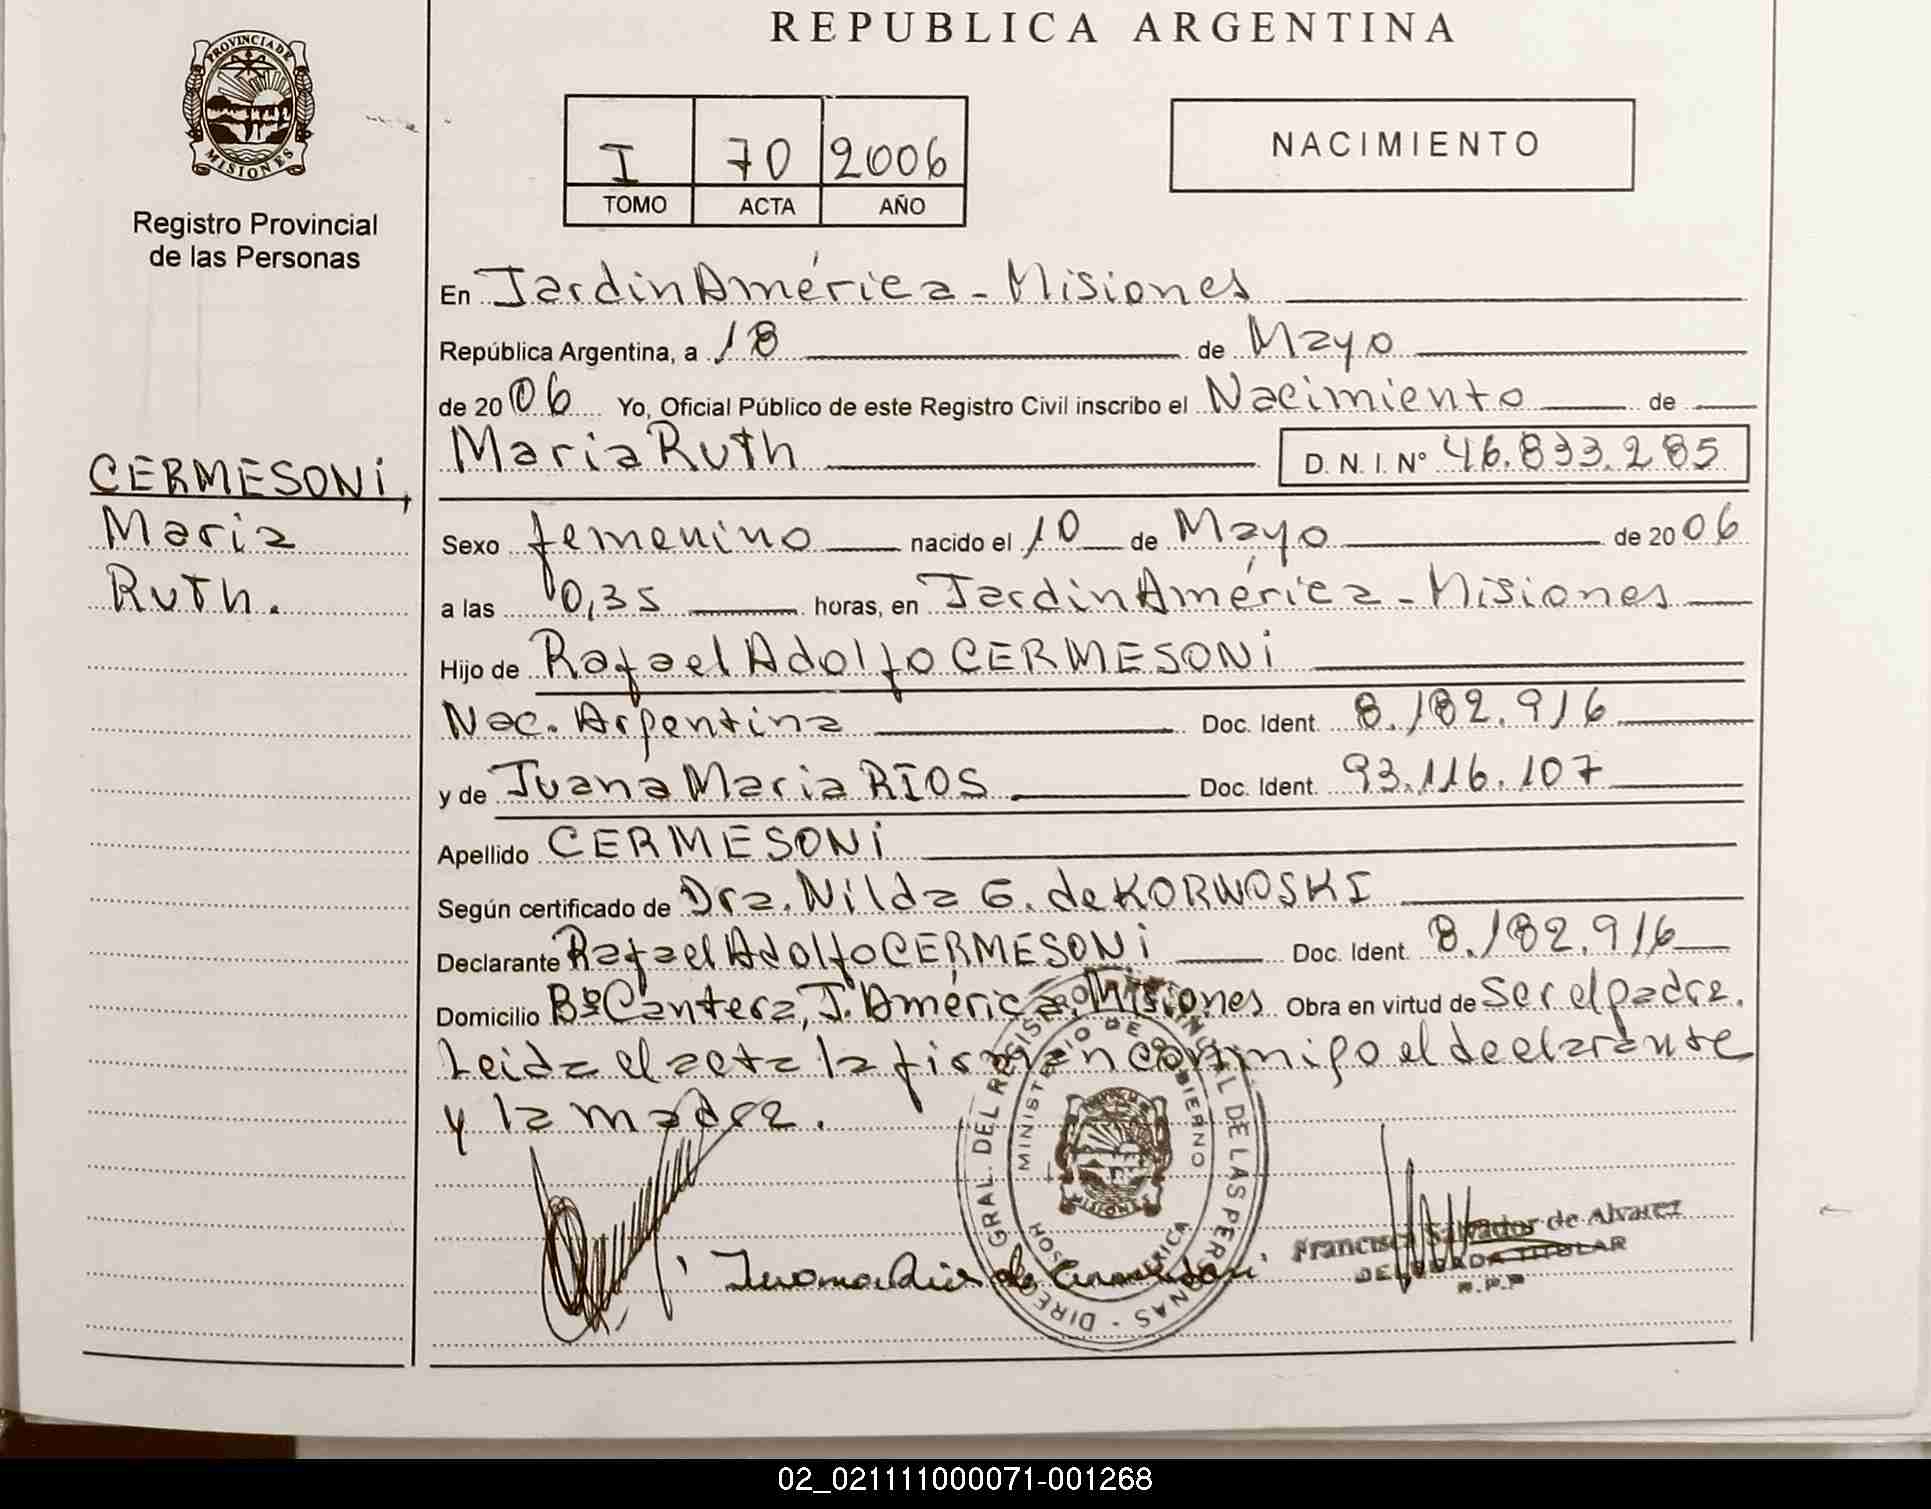 REPUBLICA ARGENTINA
PROVINCIA DE
MISIONES
Registro Provincial
de las Personas
I 70 2006
TOMO ACTA AÑO
NACIMIENTO
CERMESONi,
Maria
Ruth.
En Jardin América - Misiones
República Argentina, a 18 de Mayo
de 2006 Yo, Oficial Público de este Registro Civil inscribo el Nacimiento de
Maria Ruth D. N. I. N° 46.833.285
Sexo femenino nacido el 10 de Mayo de 2006
a las 0,35 horas, en Jardin América - Misiones
Hijo de Rafael Adolfo CERMESONi
Nac. Argentina Doc. Ident. 8.182.916
y de Juana Maria RIOS Doc. Ident. 93.116.107
Apellido CERMESONi
Según certificado de Dra. Nilda G. de KORNOSKI
Declarante Rafael Adolfo CERMESONi Doc. Ident. 8.182.916
Domicilio Bº Cantera, J. América, Misiones Obra en virtud de ser el padre.
Leida el acta la firman conmigo el declarante
y la madre.
DIREC GRAL. DEL REGISTRO PROVINCIAL DE LAS PERSONAS
MINISTERIO DE GOBIERNO
MISIONES
Francisca Salvador de Alvarez
DELEGADA TITULAR
R.P.P
02_021111000071-001268